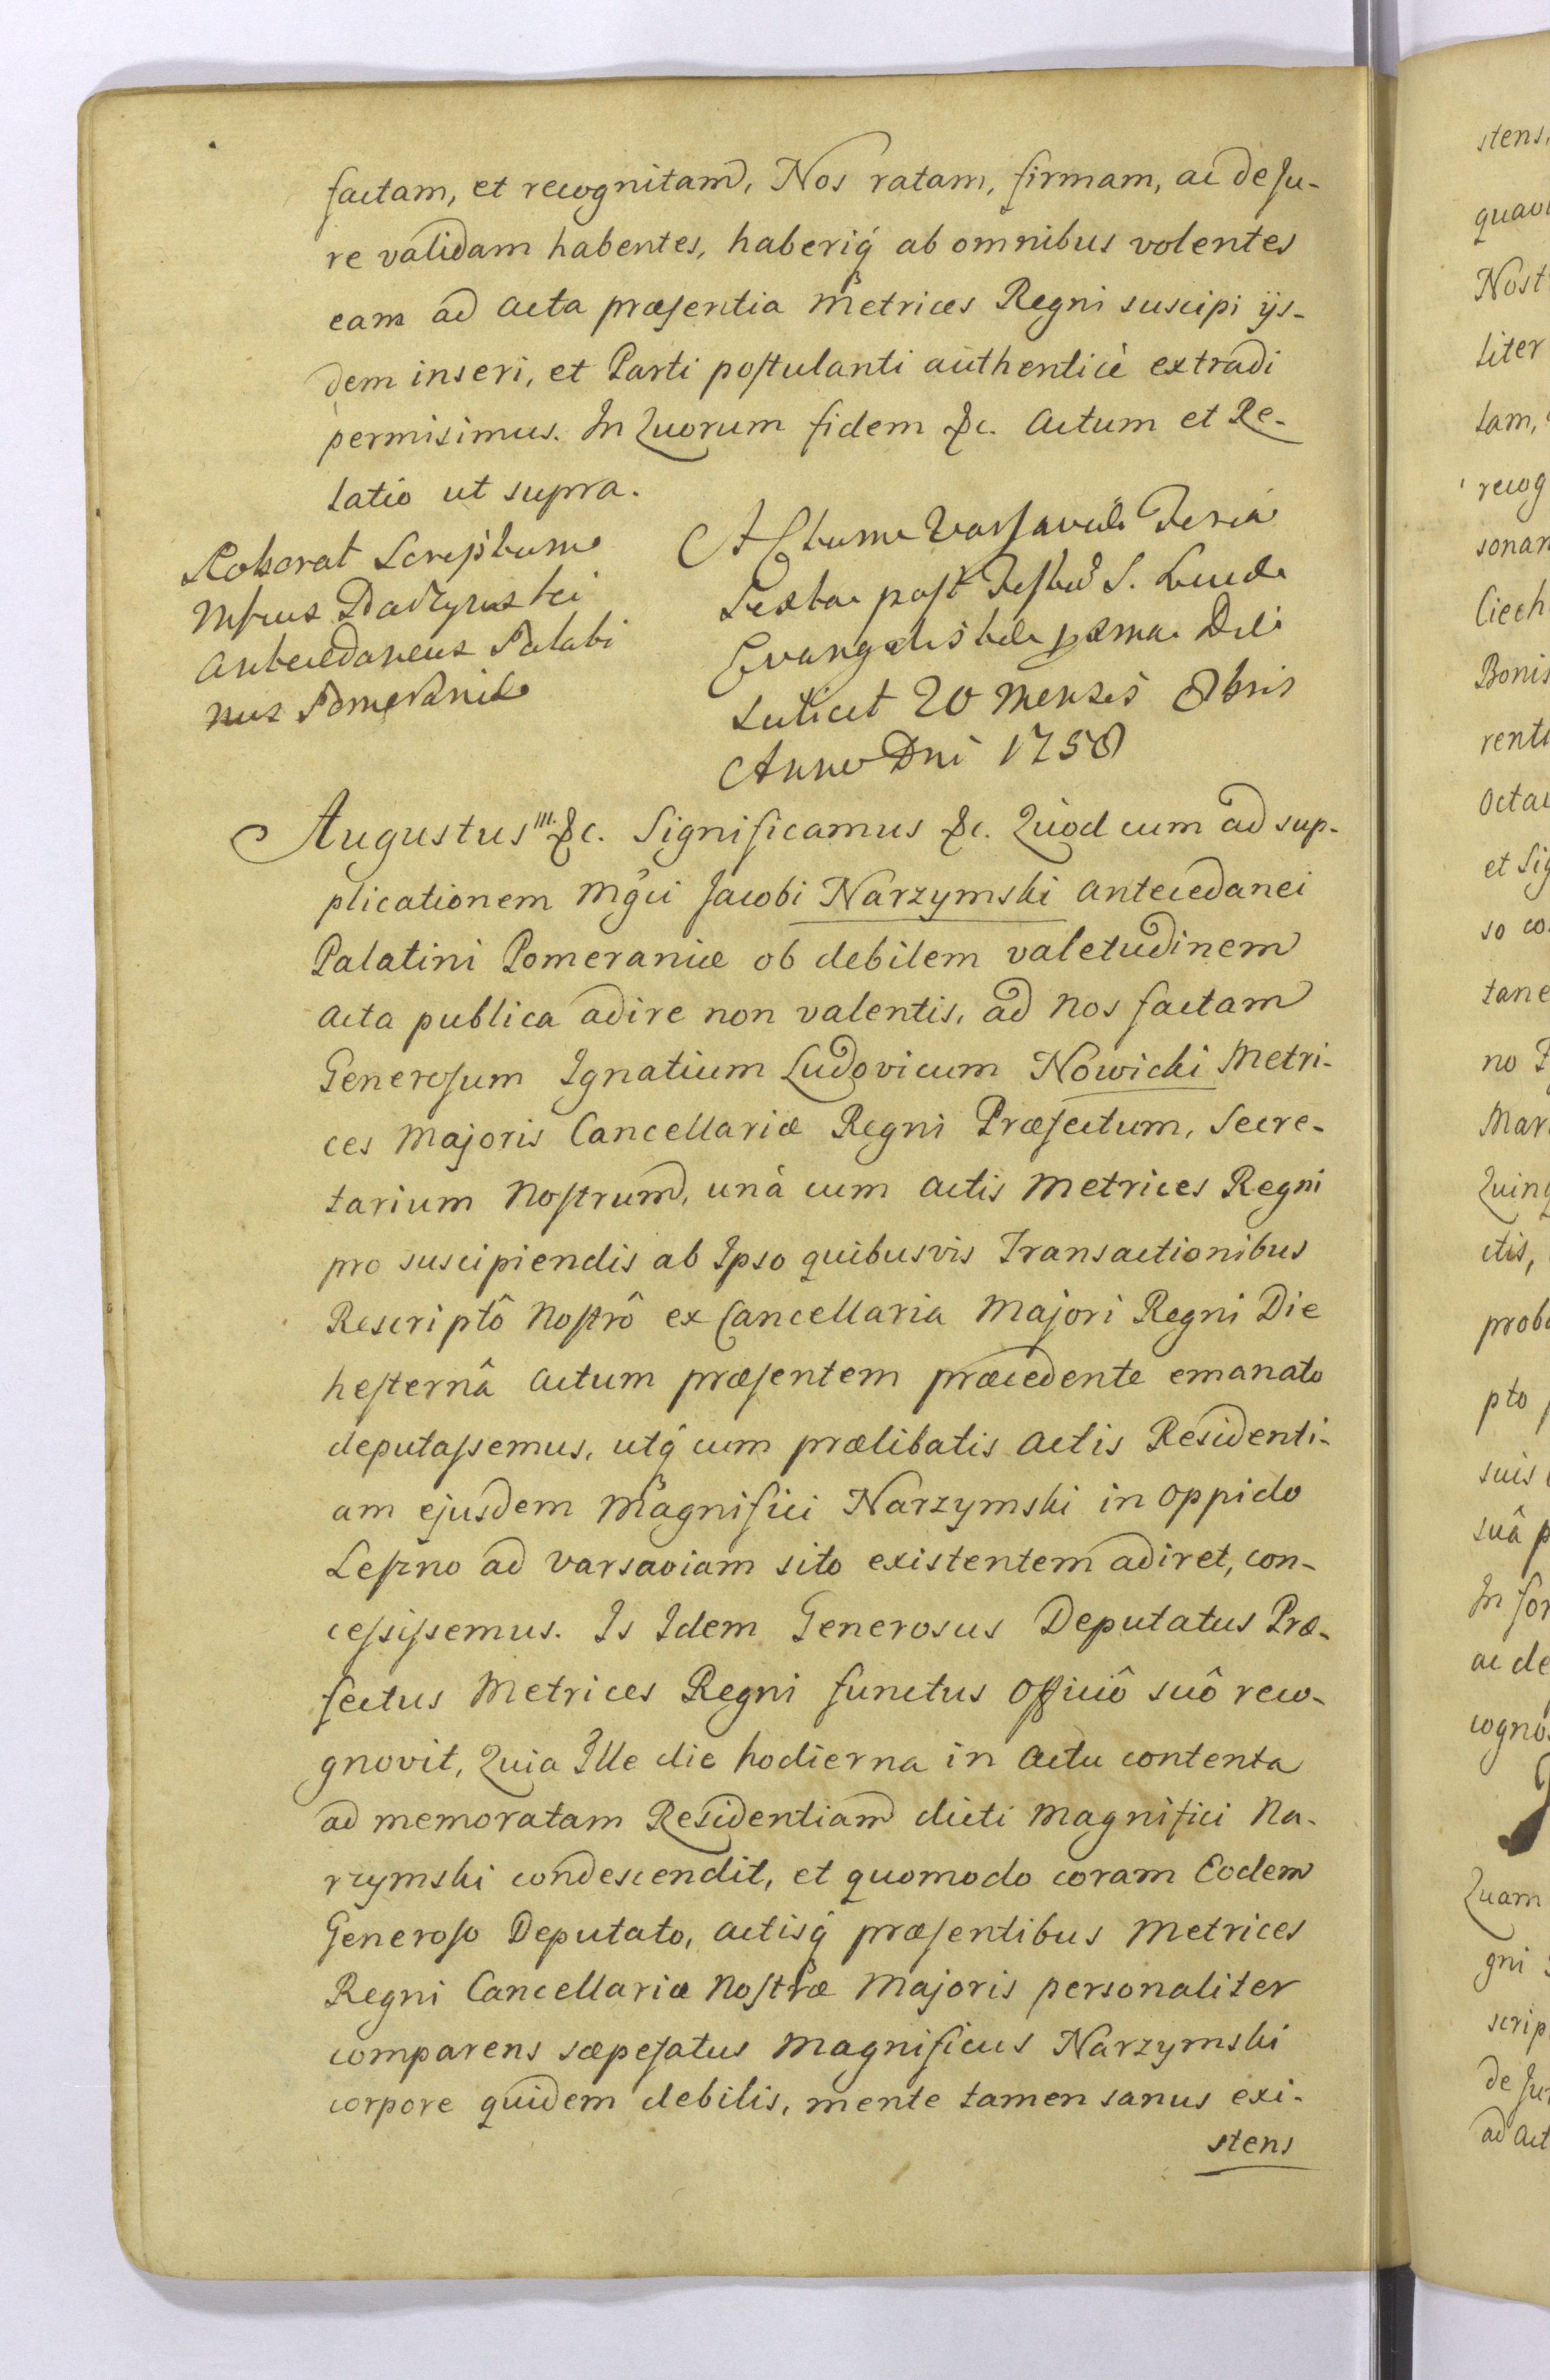 factam, et recognitam, Nos ratam, firmam, ac de Ju-
re validam habentes, haberiq́ ab omnibus volentes
eam ad acta præsentia Metrices Regni suscipi ijs-
dem inseri, et Parti postulanti authenticè extradi
permisimus. In Quorum fidem &c. Actum et Re-
latio ut supra.
Roborat Scriptum
Mfcus Narzymski
Antecedaneus Palati
nus Pomeraniæ
Actum Varsaviæ Feria
Sexta post Festum S. Lucæ
Evangelistæ proxima Die
scilicet 20 Mensis 8bris
Anno Dni 1758
Augustus III. &c. Significamus &c. Quod cum ad sup-
plicationem Mgci Jacobi Narzymski Antecedanei
Palatini Pomeraniæ ob debilem valetudinem
Acta publica adire non valentis, ad Nos factam
Generosum Ignatium Ludovicum Nowicki Metri-
ces Majoris Cancellariæ Regni Præfectum, Secre-
tarium Nostrum, unà cum Actis Metrices Regni
pro suscipiendis ab Ipso quibusvis Transactionibus
Rescriptô Nostrô ex Cancellaria Majori Regni Die
hesternâ Actum præsentem præcedente emanato
deputassemus, utq́ cum prælibatis Actis Residenti-
am ejusdem Magnifici Narzymski in Oppido
Leszno ad Varsaviam sito existentem adiret, con-
cessissemus. Is Idem Generosus Deputatus Præ-
fectus Metrices Regni functus Officiô suô reco-
gnovit, Quia Ille die hodierna in Actu contenta
ad memoratam Residentiam dicti Magnifici Na-
rzymski condescendit, et quomodo coram Eodem
Generoso Deputato, Actisq́ præsentibus Metrices
Regni Cancellariæ Nostræ Majoris personaliter
comparens sæpefatus Magnificus Narzymski
corpore quidem debilis, mente tamen sanus exi-
stens
stens
quavi
Nost
liter
tam,
recog
sonar
Ciech
Bonis
rent
Octa
et Sig
so co
tane
no
Mar
Quinq
ctis,
prob
pto
suis
suâ p
In for
ac de
cogno
Quam
gni
scrip
de Ju
ad Act